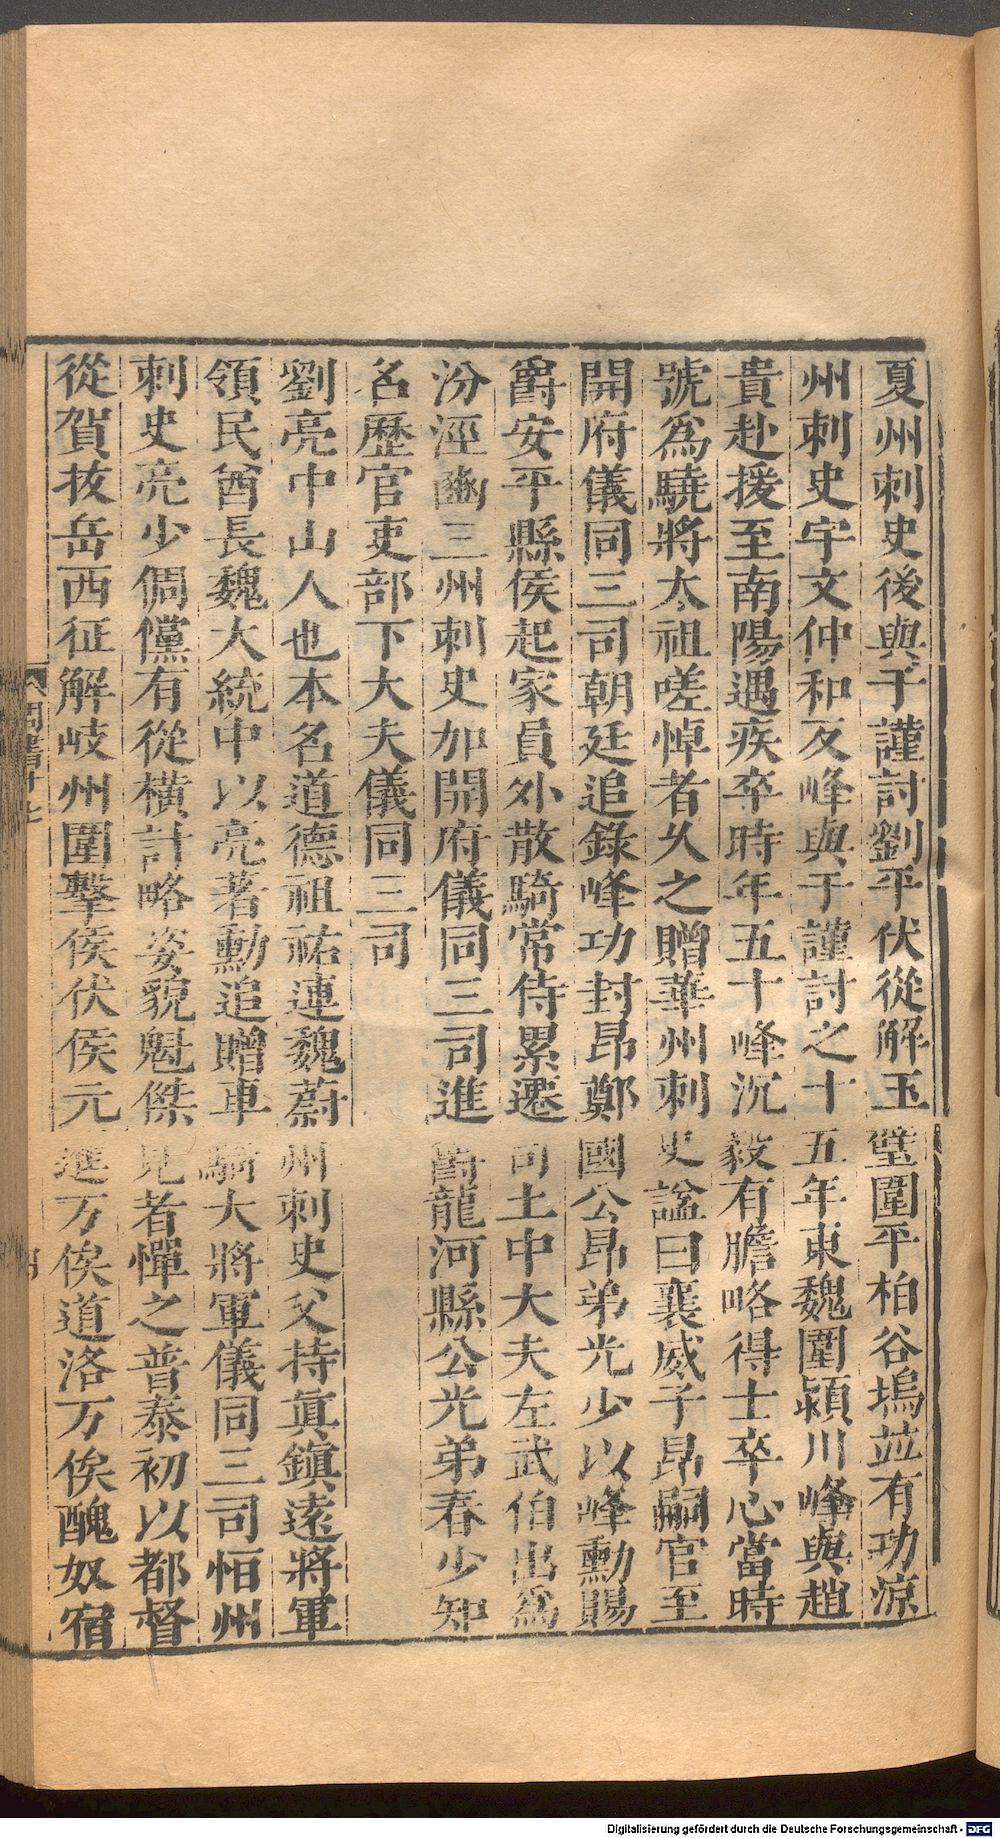 夏州刺史後與于謹討劉平伏從解玉壁圍平柏谷塢並有功涼
州刺史宇文仲和反峰與于謹討之十五年東魏圍潁川峰與趙
貴赴援至南陽遇疾卒時年五十峰沉毅有膽略得士卒心當時
號爲驍將太祖嗟悼者久之贈華州刺史諡曰襄威子昂嗣官至
開府儀同三司朝廷追錄峰功封昂鄭國公昂弟光少以峰勳賜
爵安平縣侯起家員外散騎常侍累遷司土中大夫左武伯出爲
汾涇豳三州刺史加開府儀同三司進爵龍河縣公光弟春少知
名歷官吏部下大夫儀同三司
劉亮中山人也本名道德祖祐連魏蔚州刺史父持眞鎭遠將軍
領民酋長魏大統中以亮著勳追贈車騎大將軍儀同三司恒州
刺史亮少倜儻有從橫計略姿貌魁傑見者憚之普泰初以都督
從賀拔岳西征解岐州圍擊侯伏侯元進万俟道洛万俟醜奴宿
周書十七
四
Digitalisierung gefördert durch die Deutsche Forschungsgemeinschaft - DFG